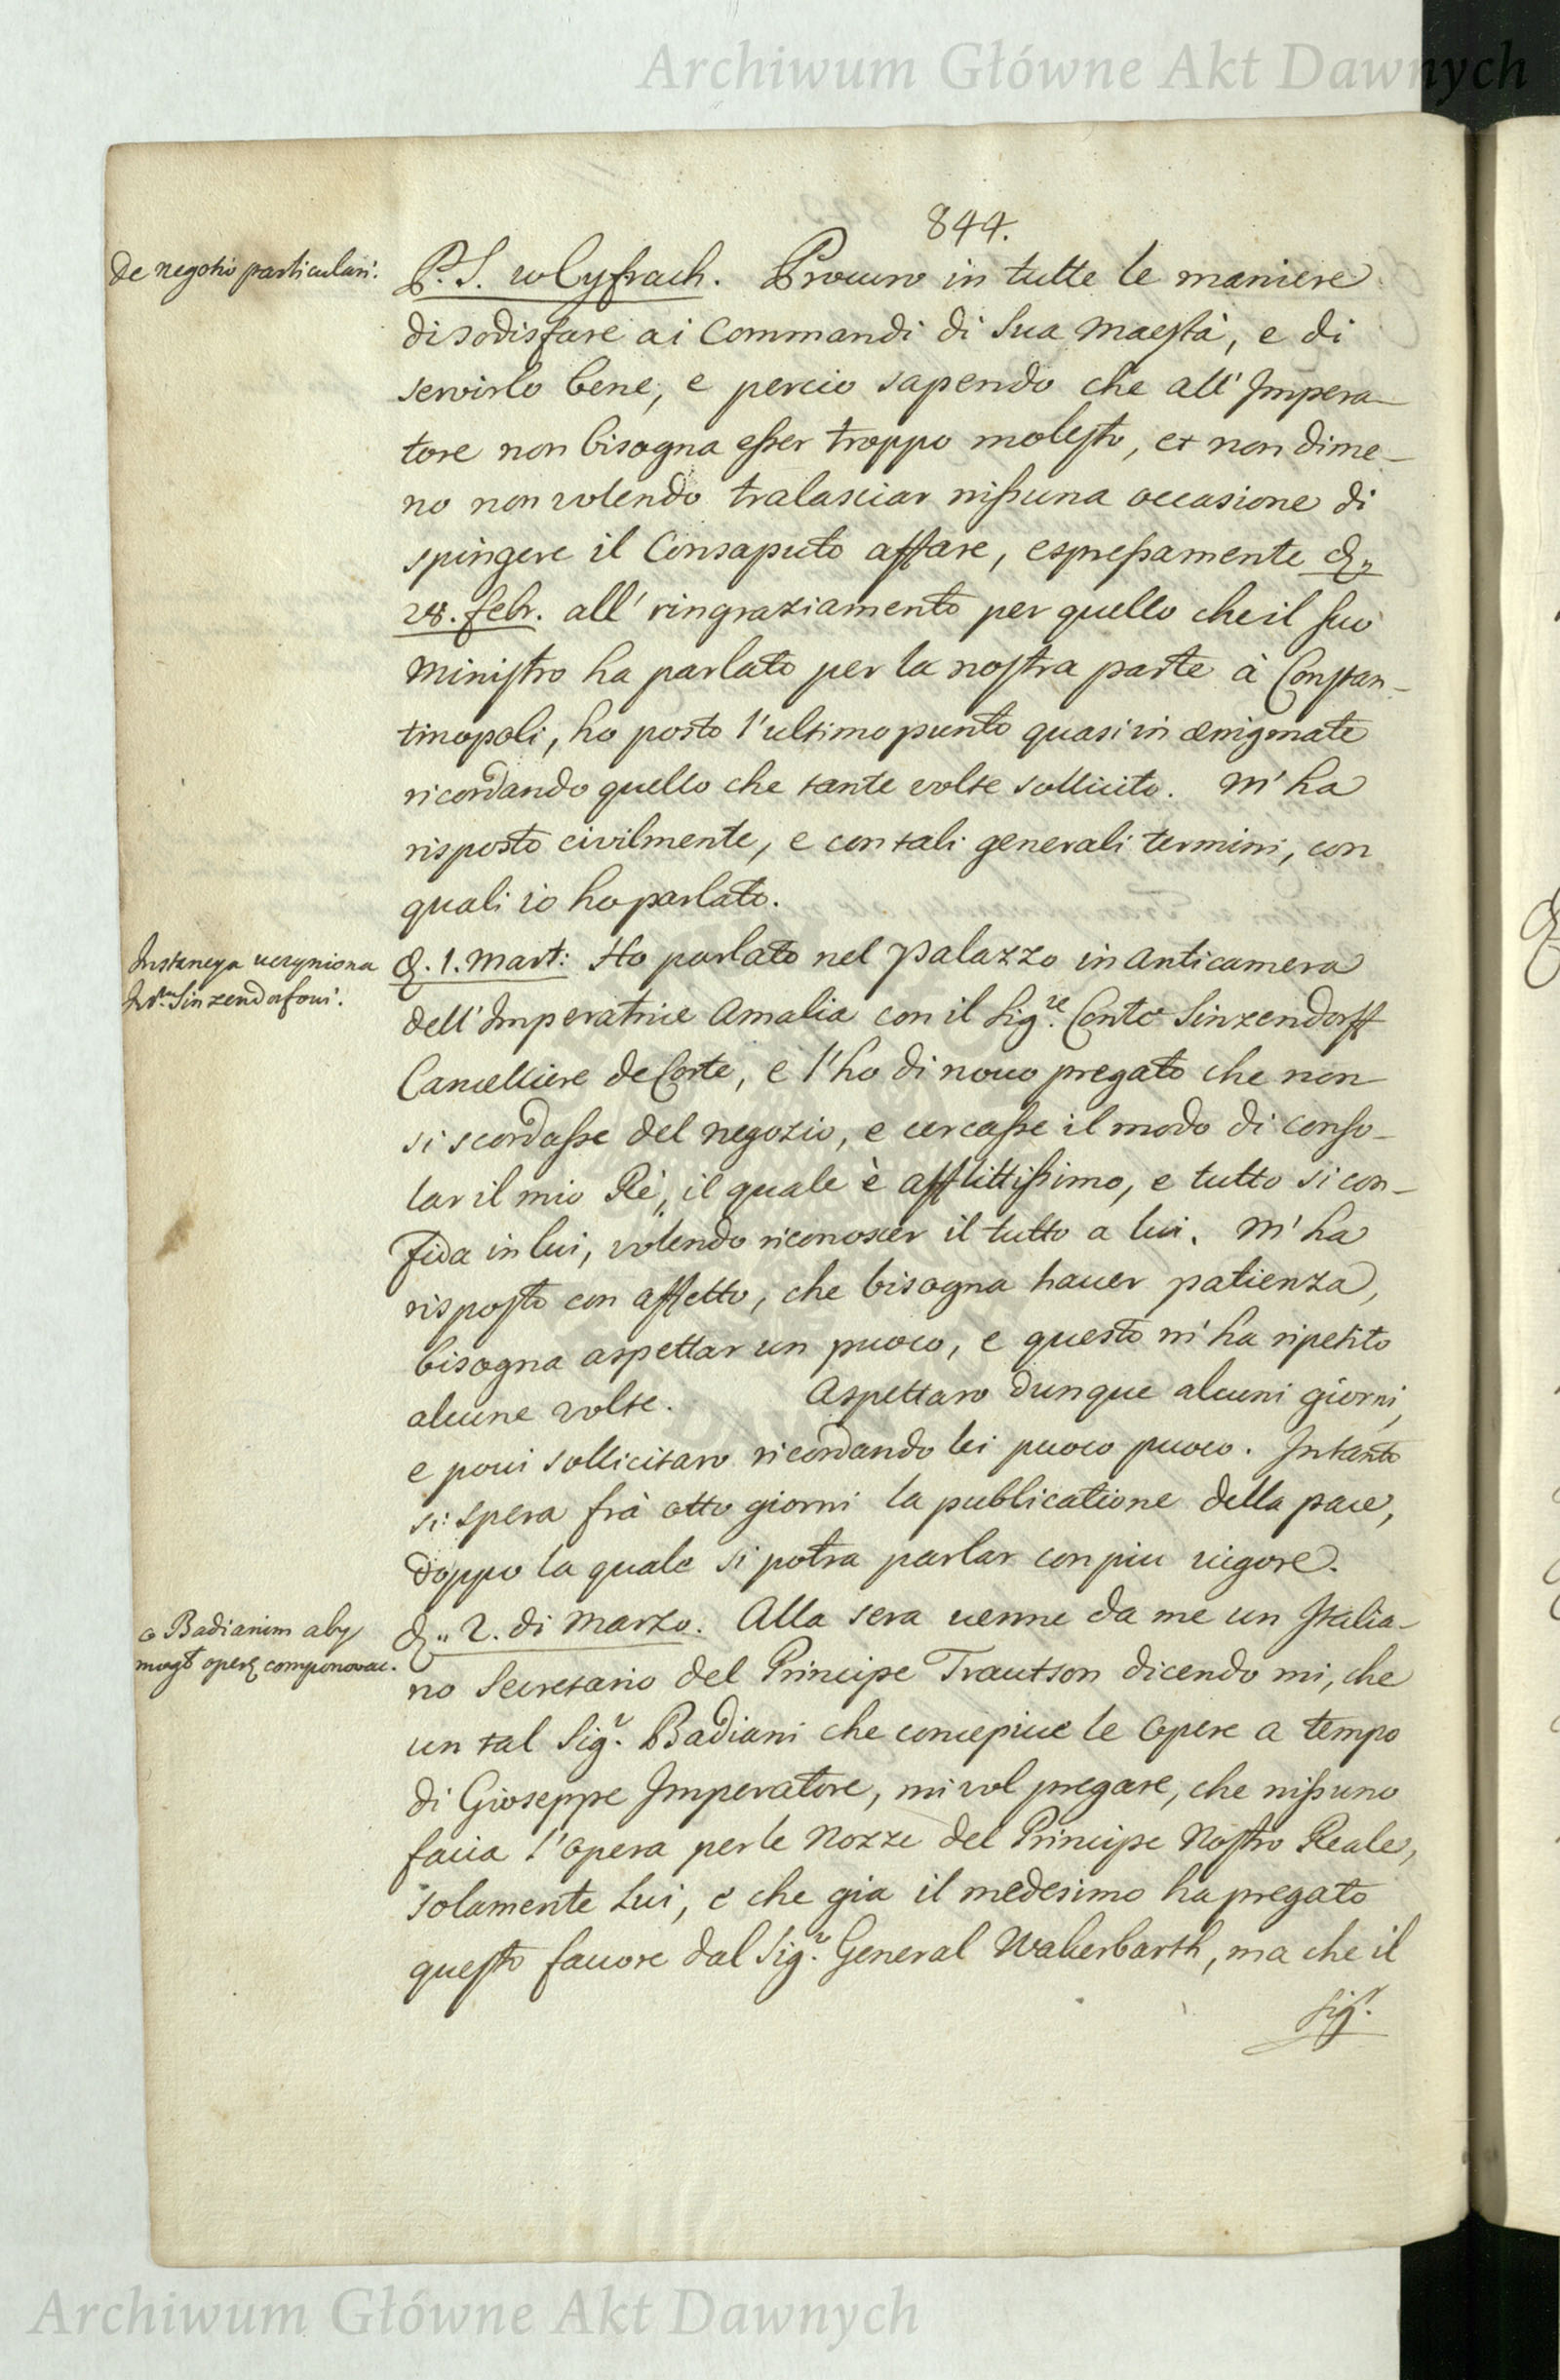 Archiwum Główne Akt Dawnych
844.
de negotio particulari.
P. S. w Cyfrach. Procuro in tutte le maniere
di sodisfare ai Commandi di Sua Maestà, e di
servirlo bene, e percio sapendo che all' Impera-
tore non bisogna esser troppo molesto, et non dime-
no non volendo tralasciar nissuna occasione di
spingere il Consaputo affare, espressamente d.
28. febr. all' ringraziamento per quello che il suo
Ministro ha parlato per la nostra parte à Constan-
tinopoli, ho posto l'ultimo punto quasi in ænigmate
ricordando quello che tante volte sollicito. M'ha
risposto civilmente, e con tali generali termini, con
quali io ho parlato.
Instancya uczyniona
Sinzendorfowi.
d. 1. Mart: Ho parlato nel Palazzo in Anticamera
dell' Imperatrice Amalia con il Sig.re Conte Sinzendorff
Cancelliere de Corte, e l'ho di novo pregato che non
si scordasse del negozio, e cercasse il modo di conso-
lar il mio Rè, il quale è afflittissimo, e tutto si con-
fida in lui, volendo riconoscer il tutto a lui. M'ha
risposto con affetto, che bisogna hauer patienza,
bisogna aspettar un puoco, e questo m'ha ripetito
alcune volte. Aspettaro dunque alcuni giorni,
e poui sollicitaro ricordando lei puoco puoco. Intanto
si spera frà otto giorni la publicatione della pace,
doppo la quale si potra parlar con piu uigore.
o Badianim aby
mogł operę componowac.
d. 2. di Marzo. Alla sera uenne da me un Italia-
no Secretario del Principe Trautson dicendo mi, che
un tal Sig.r Badiani che concepiue le Opere a tempo
di Gioseppe Imperatore, mi vol pregare, che nissuno
facia l'Opera per le Nozze del Principe Nostro Reale,
solamente Lui, e che gia il medesimo ha pregato
questo fauore dal Sig.r General Wakerbarth, ma che il
Sig.r
Archiwum Główne Akt Dawnych